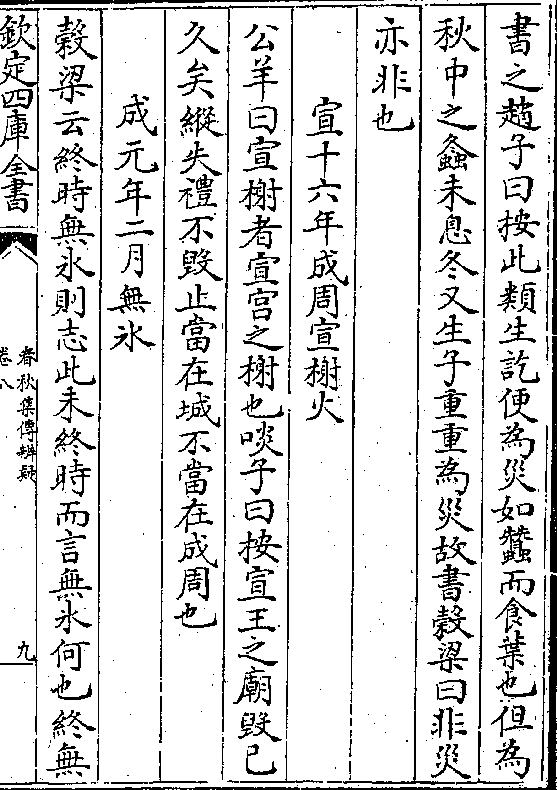 書之趙子曰按此類生訖便為災如蠶而食葉也但為
秋中之螽未息冬又生子重重為災故書穀梁曰非災
亦非也
宣十六年成周宣榭火
公羊曰宣榭者宣宫之榭也啖子曰按宣王之廟毀已
久矣縱失禮不毀止當在城不當在成周也
成元年二月無氷
穀梁云終時無氷則志此未終時而言無氷何也終無
欽定四庫全書
春秋集傳辨疑
卷八
九